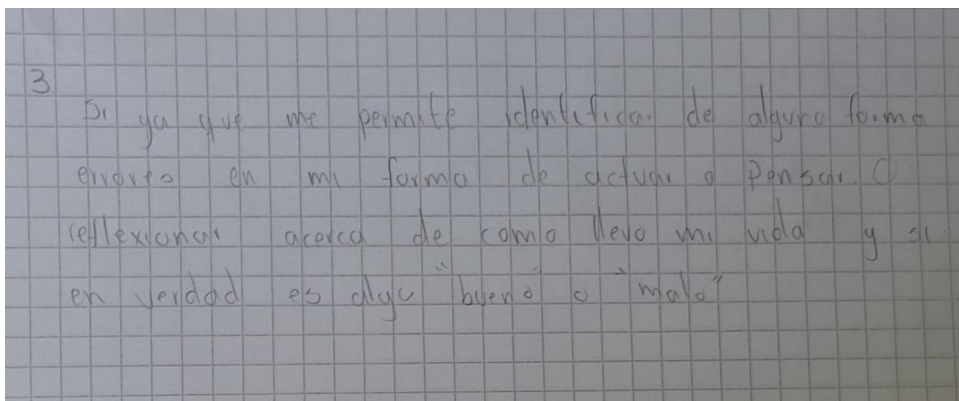 3
Si ya que me permite identificar de alguna forma
errores en mi forma de actuar o Pensar. O
reflexionar acerca de como llevo mi vida y si
en verdad es algo "bueno" o "malo"